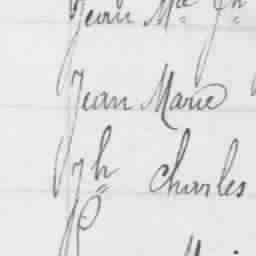 Jean Ma Jh
Jean Marie
Jh Charles